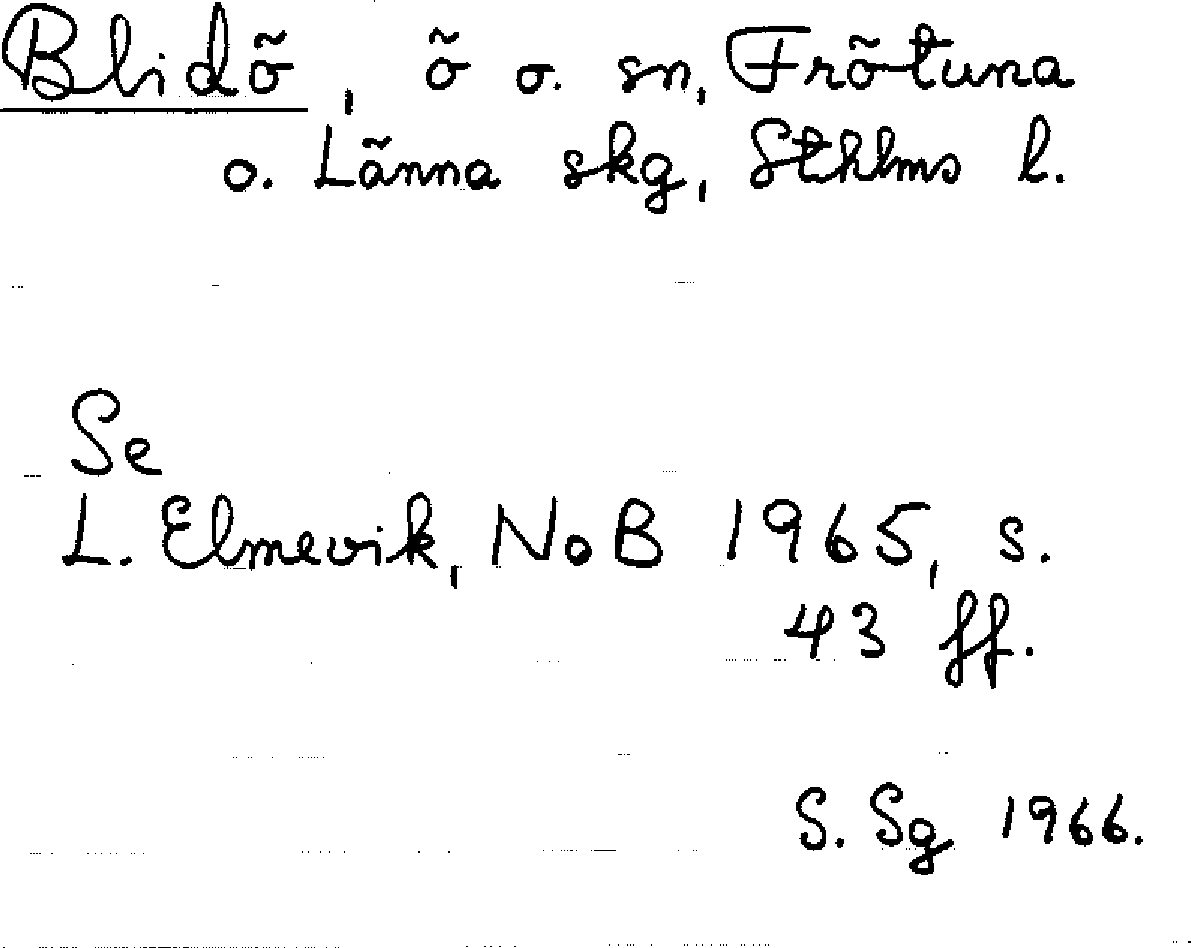 Blidö, ö o. sn, Frötuna
o. Länna skg, Sthlms l.
Se
L. Elmevik, NoB 1965, s.
43 ff.
S. Sg 1966.